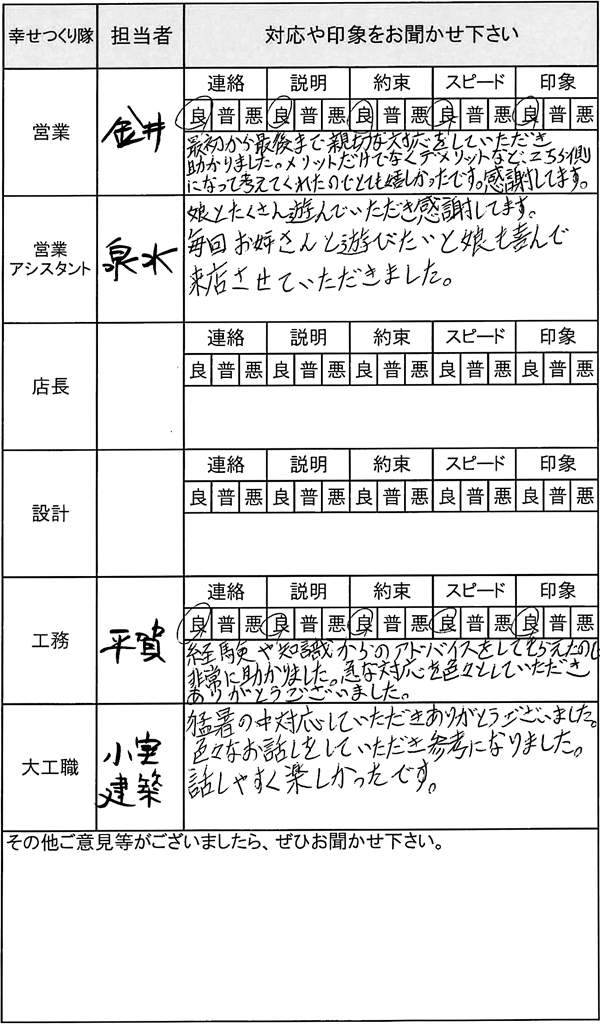 幸せつくり隊 担当者 対応や印象をお聞かせ下さい
営業 金井
連絡 説明 約束 スピード 印象
良 普 悪 良 普 悪 良 普 悪 良 普 悪 良 普 悪
最初から最後まで親切な対応をしていただき
助かりました。メリットだけでなくデメリットなど、こちら側
になって考えてくれたのでとても嬉しかったです。感謝してます。
営業
アシスタント
泉水
娘とたくさん遊んでいただき感謝してます。
毎回お姉さんと遊びたいと娘も喜んで
来店させていただきました。
店長
連絡 説明 約束 スピード 印象
良 普 悪 良 普 悪 良 普 悪 良 普 悪 良 普 悪
設計
連絡 説明 約束 スピード 印象
良 普 悪 良 普 悪 良 普 悪 良 普 悪 良 普 悪
工務 平賀
連絡 説明 約束 スピード 印象
良 普 悪 良 普 悪 良 普 悪 良 普 悪 良 普 悪
経験や知識からのアドバイスをしてもらえたので
非常に助かりました。急な対応を色々としていただき
ありがとうございました。
大工職
小実
建築
猛暑の中対応していただきありがとうございました。
色々なお話しをしていただき参考になりました。
話しやすく楽しかったです。
その他ご意見等がございましたら、ぜひお聞かせ下さい。